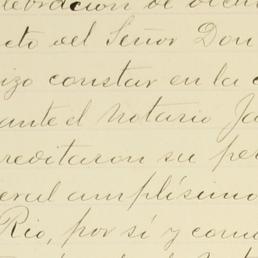 elebración de
cto del Señor Don
izo constar en la
ante el Notario Ja
reditaron su per
eral amplísimo
Rio, por sí y como